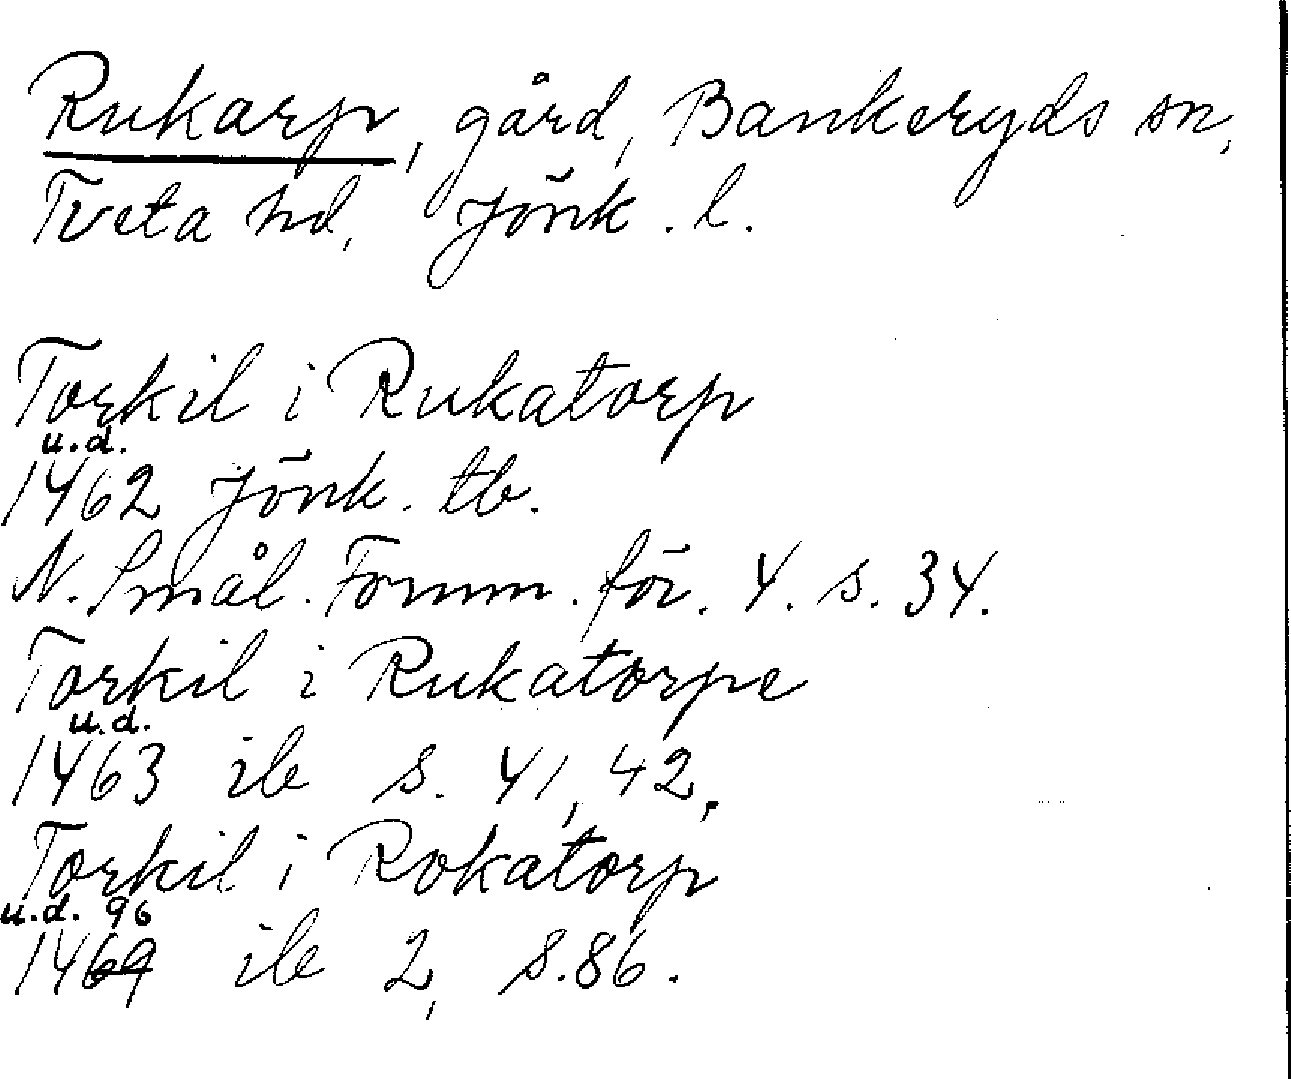 Rukarp, gård, Bankeryds sn,
Tveta hd, Jönk. l.
Torkil i Rukatorp
u.d.
1462 Jönk. tb.
N. Smål. Fornm. för. 4. s. 34.
Torkil i Rukatorpe
u.d.
1463 ib s. 41, 42,
Torkil i Rokatorp
u.d. 96
1469 ib 2, s. 86.